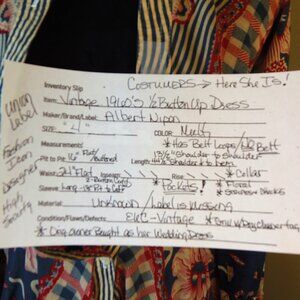 COSTUMERS → Here She Is!
Inventory Slip
Item: Vintage 1960's ½ Button Up Dress
Maker/Brand/Label: Albert Nipon
SIZE: "4"
COLOR Multi
Measurements
* Has Belt Loops/NO Belt
Pit to Pit 16" Flat/
buttoned
Shoulder to Shoulder
Length: Shoulder to hem
Waist: 24" Flat
Inseam
* Collar
2-Button Cuffs
Sleeve: Long
Pit to Cuff
* Pockets!
* Floral
Material: Unknown / Label is Missing
Condition/Flaws/Defects: EUC-Vintage
* Orig. owner Bought as her Wedding Dress
Union
Label
Fashion
Icon
Designer
High
Society